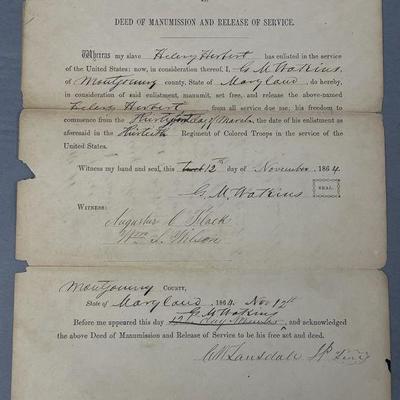 DEED OF MANUMISSION AND RELEASE OF SERVICE.
Whereas my slave Henry Herbert has enlisted in the service
of the United States: now, in consideration thereof, I, G. M. Watkins,
of Montgomery county, State of Maryland, do hereby,
in consideration of said enlistment, manumit, set free, and release the above-named
Henry Herbert from all service due me; his freedom to
commence from the Thirty first day of March, the date of his enlistment as
aforesaid in the Thirtieth Regiment of Colored Troops in the service of the
United States.
Witness my hand and seal, this 12th day of November, 1864.
G. M. Watkins
SEAL.
WITNESS:
Augustus
Wm. S. Wilson
Montgomery COUNTY,
State of Maryland, 1864. Nov 12th
G. M. Watkins
Before me appeared this day and acknowledged
the above Deed of Manumission and Release of Service to be his free act and deed.
C. W. Lansdale J.P.